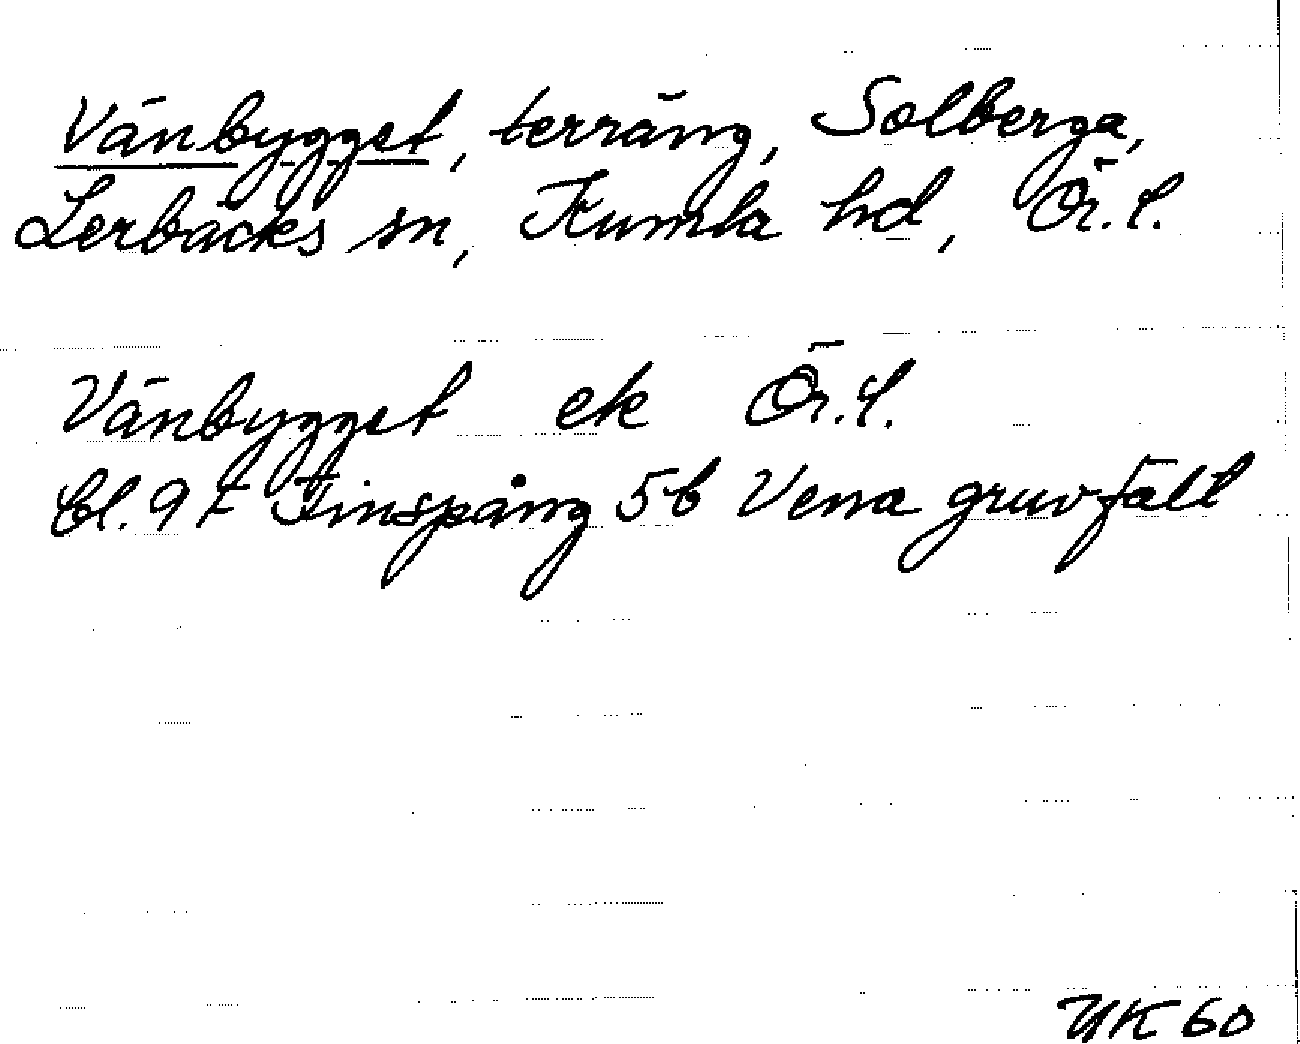 Vänbygget, terräng, Solberga,
Lerbäcks sn, Kumla hd, Ör.l.
Vänbygget ek Ör.l.
bl. 9 F Finspång 5b Vena gruvfält
UK 60